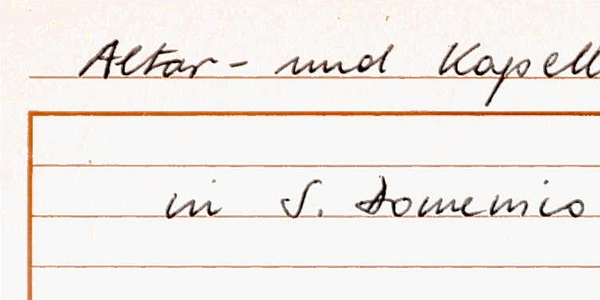 Altar- und Kapell
in S. Domenico